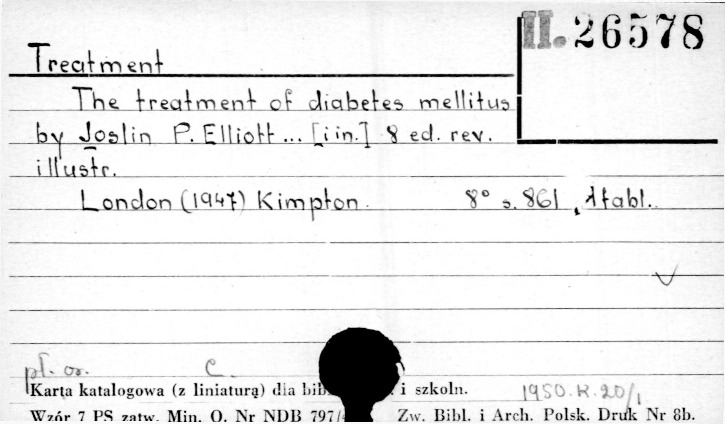 II. 26578
Treatment
The treatment of diabetes mellitus
by Joslin P. Elliott... [i in.] 8 ed. rev.
illustr.
London (1947) Kimpton. 8° s. 861, 1 tabl.
pł. or. C.
Karta katalogowa (z liniaturą) dla i szkoln. 1950.K.20/1
Wzór 7 PS zatw. Min. O. Nr NDB 797/ Zw. Bibl. i Arch. Polsk. Druk Nr 8b.